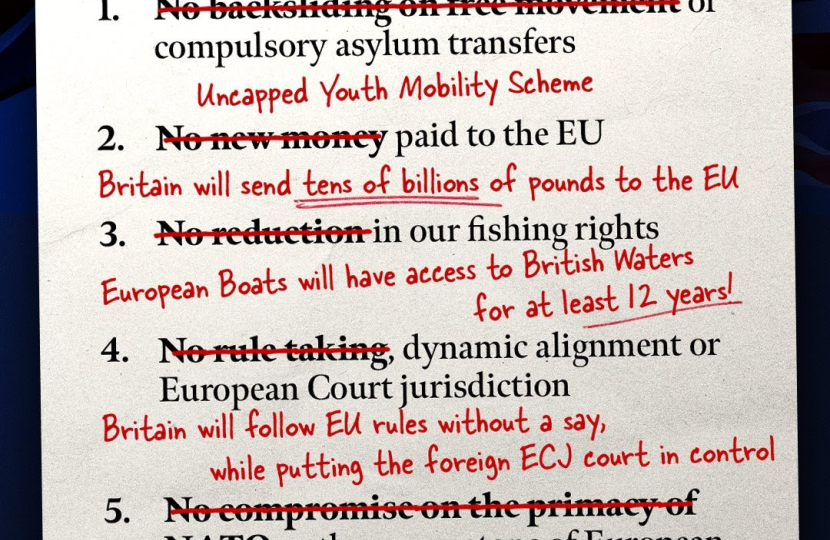 1. No backsliding on free movement or
compulsory asylum transfers
Uncapped Youth Mobility Scheme
2. No new money paid to the EU
Britain will send tens of billions of pounds to the EU
3. No reduction in our fishing rights
European Boats will have access to British Waters
for at least 12 years!
4. No rule taking, dynamic alignment or
European Court jurisdiction
Britain will follow EU rules without a say,
while putting the foreign ECJ court in control
5. No compromise on the primacy of
NATO as the cornerstone of European